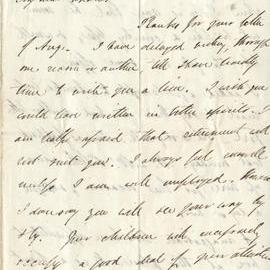 Thanks for your letter
of Aug. I have delayed writing, through
one reason or another till I have scarcely
time to write you a line. I wish you
could have written in better spirits. I
am really afraid that retirement will
not suit you. I always feel
unless I am well employed. However
I daresay you will see your way by
& by. Your children will necessarily
occupy a good deal of your attention